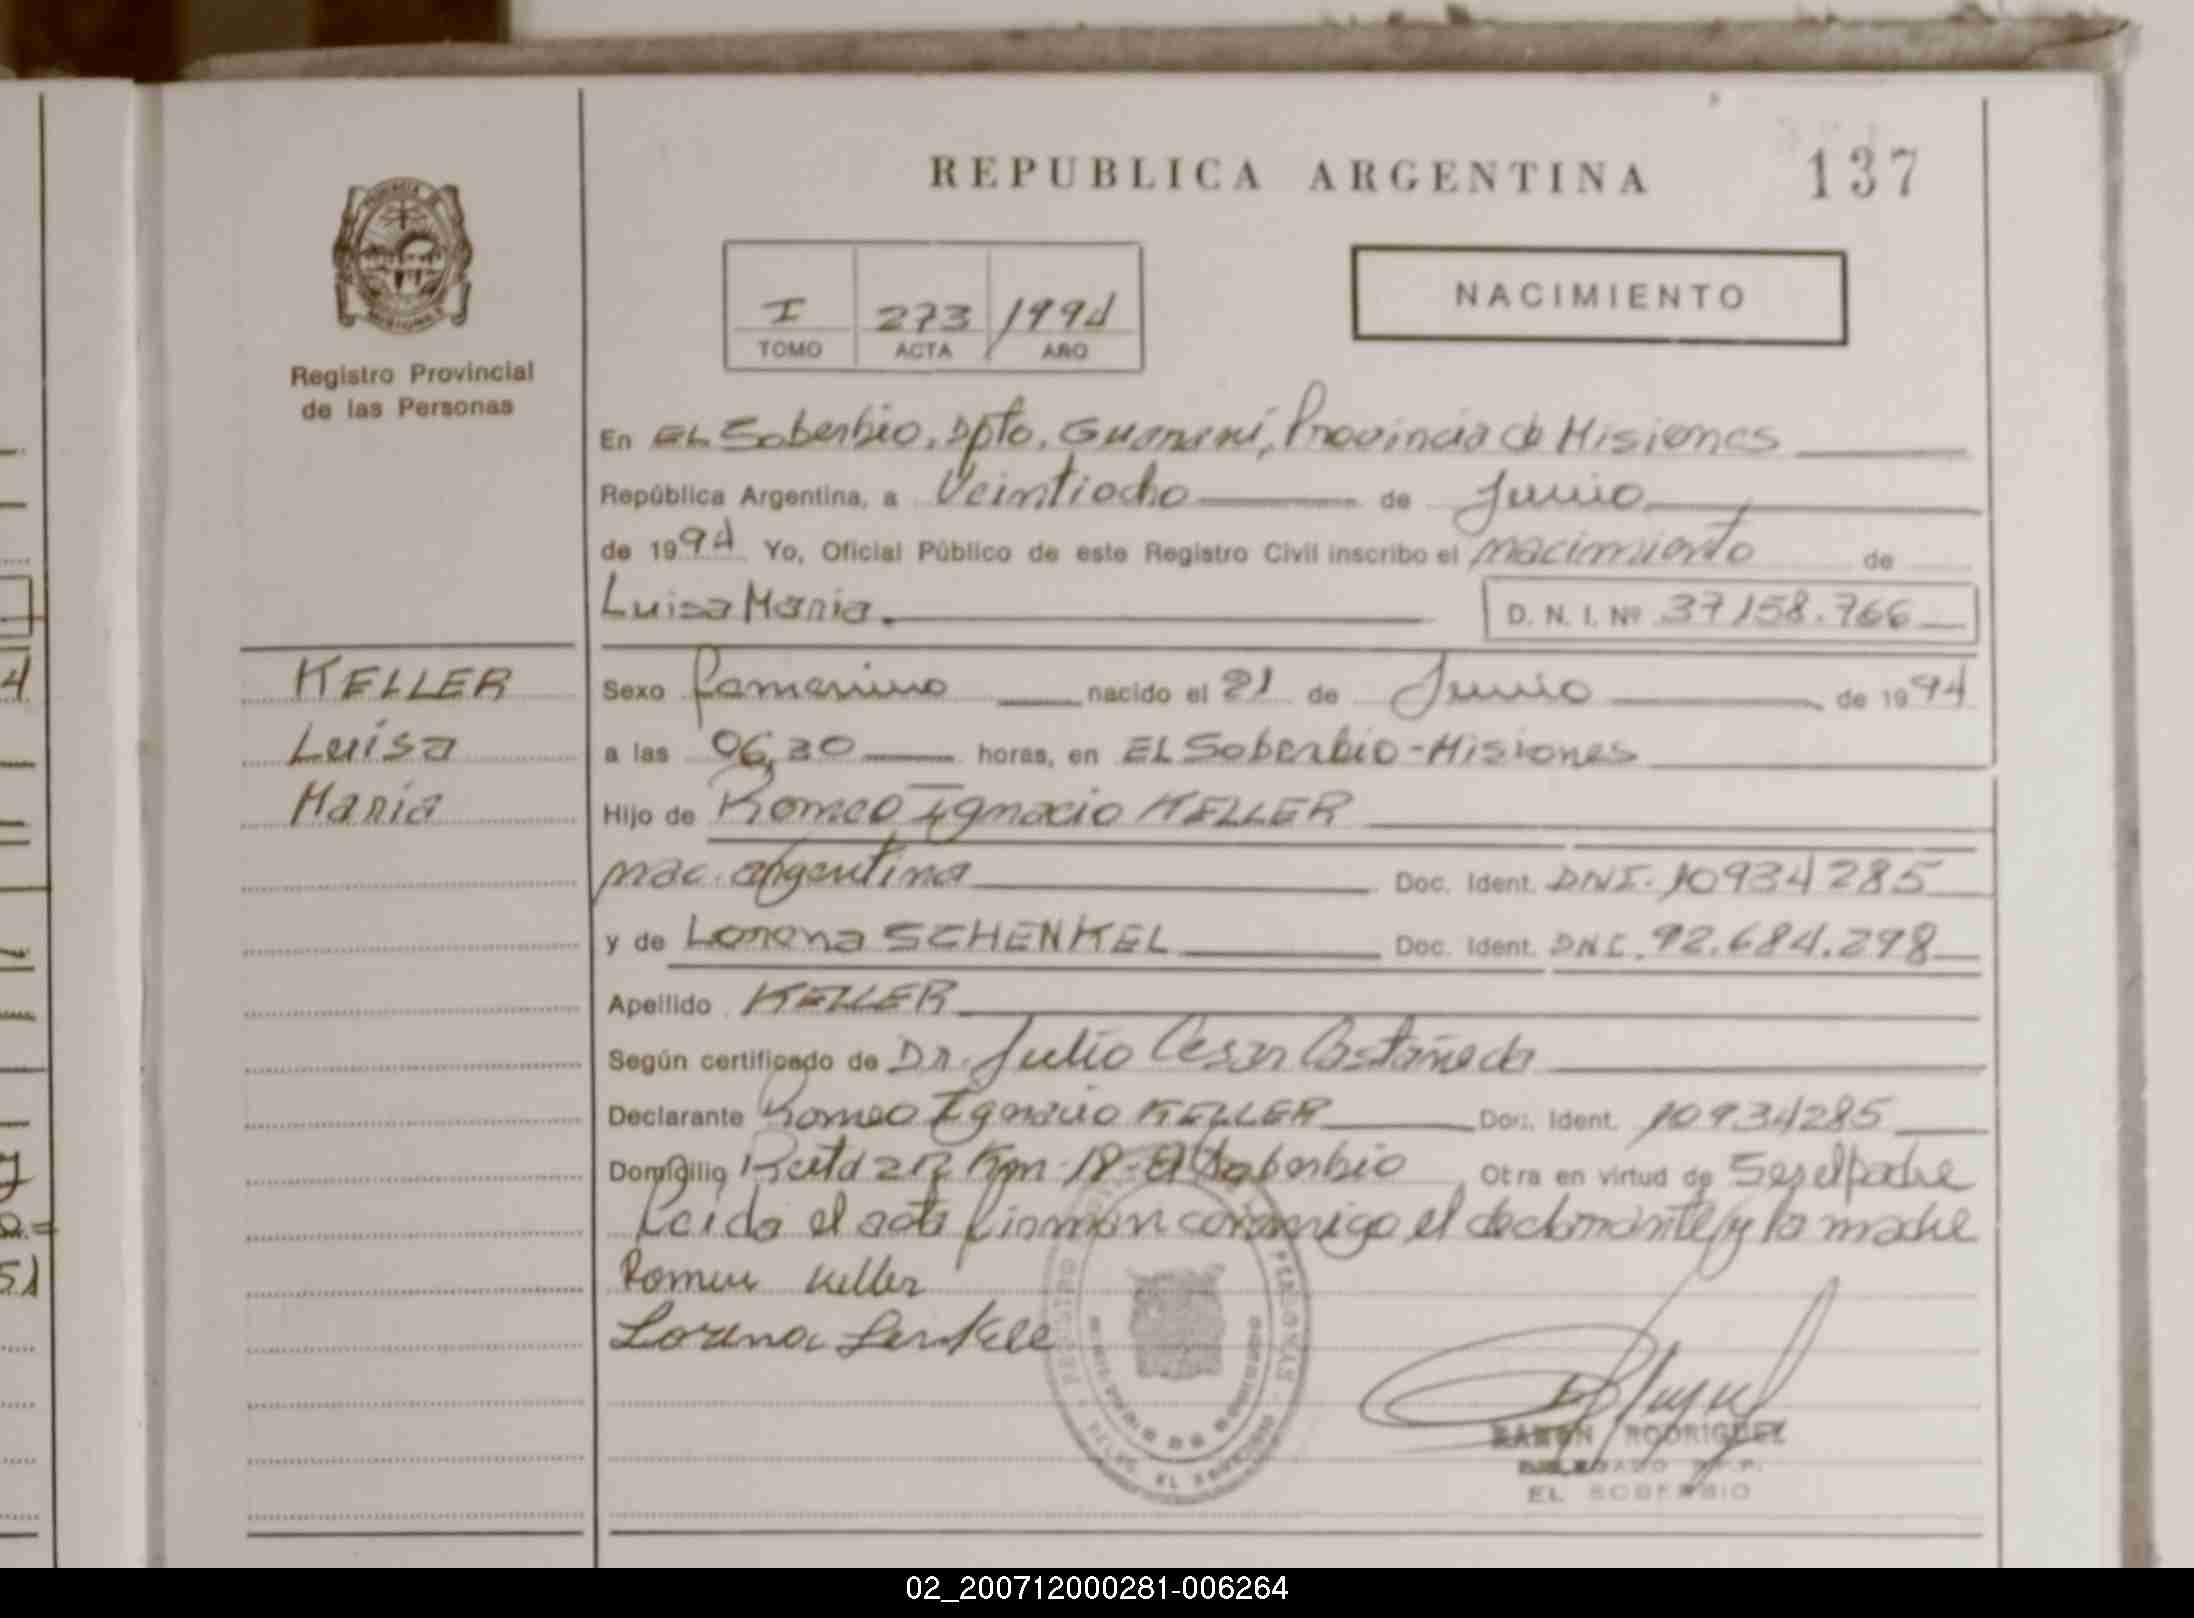 REPUBLICA ARGENTINA
137
I 273 /1994
TOMO ACTA AÑO
NACIMIENTO
Registro Provincial
de las Personas
En EL Soberbio, Dpto. Guaraní, Provincia de Misiones
República Argentina, a Veintiocho de Junio
de 1994 Yo, Oficial Público de este Registro Civil inscribo el nacimiento de
Luisa Maria. D. N. I. Nº 37158.766
KELLER
Luisa
Maria
Sexo femenino nacido el 21 de Junio de 1994
a las 06,30 horas, en EL Soberbio-Misiones
Hijo de Romeo Ignacio KELLER
nac. argentina Doc. Ident. DNI. 10934285
y de Lorena SCHENKEL Doc. Ident. DNI. 92.684.298
Apellido KELLER
Según certificado de Dr. Julio Cesar Castañeda
Declarante Romeo Ignacio KELLER Doc. Ident. 10934285
Domicilio Ruta 212 Km-18-El Soberbio Otra en virtud de Ser el padre
Leida el acta firman conmigo el declarante y la madre
Romeu Keller
Lorena
RAMON RODRIGUEZ
EL SOBERBIO
02_200712000281-006264